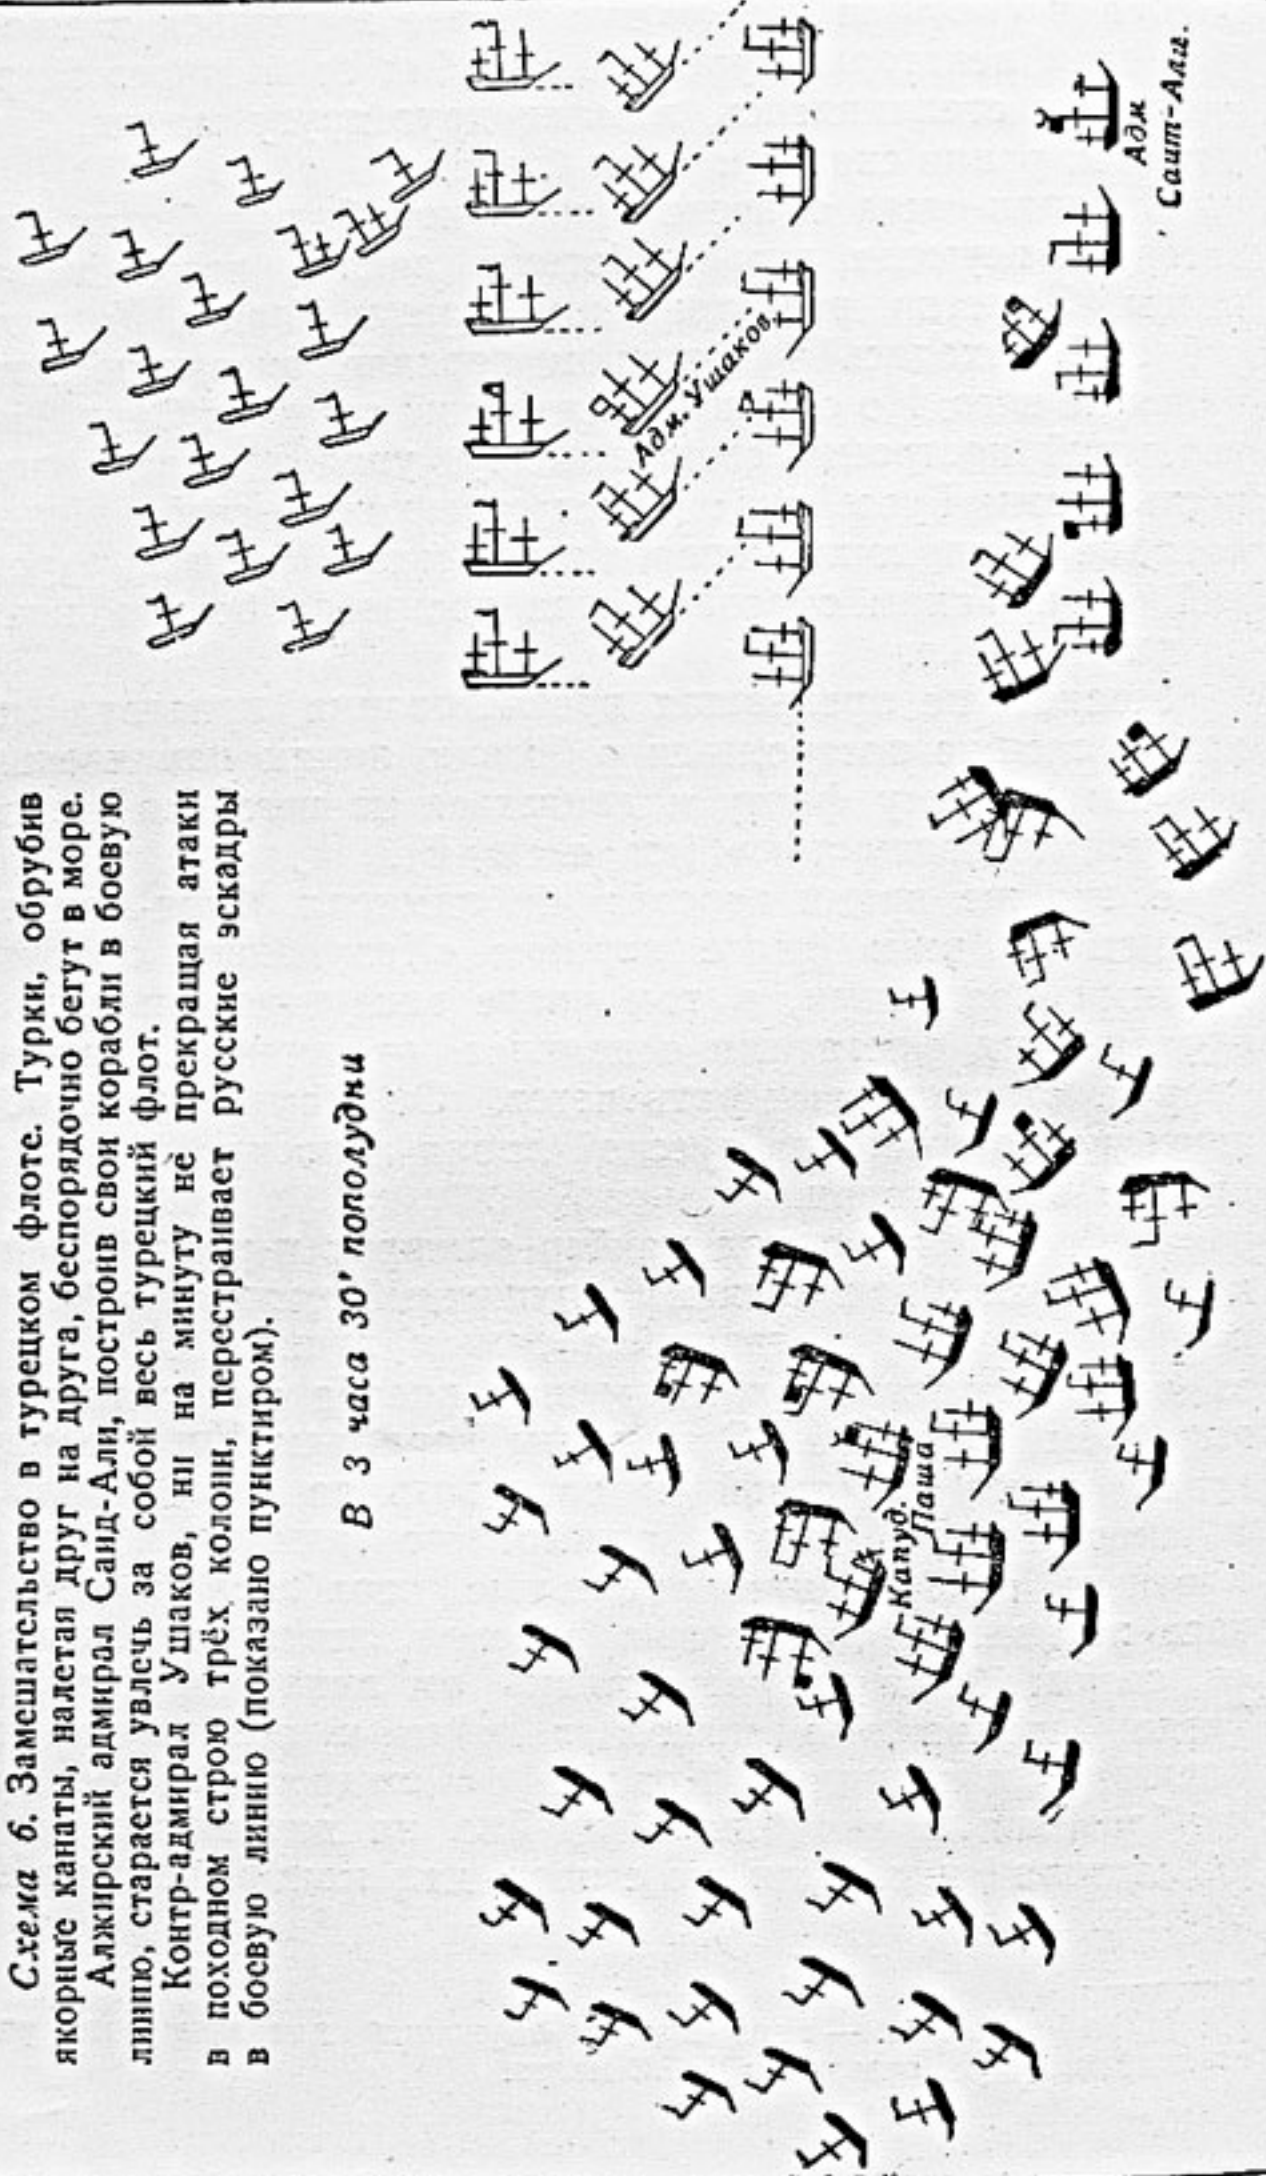 Схема 6. Замешательство в турецком флоте. Турки, обрубив
якорные канаты, налетая друг на друга, беспорядочно бегут в море.
Алжирский адмирал Саид-Али, построив свои корабли в боевую
линию, старается увлечь за собой весь турецкий флот.
Контр-адмирал Ушаков, ни на минуту не прекращая атаки
в походном строю трёх колонн, перестраивает русские эскадры
в боевую линию (показано пунктиром).
В 3 часа 30' пополудни
Адм. Ушаков
Адм
Саит-Али.
Капуд.
Паша